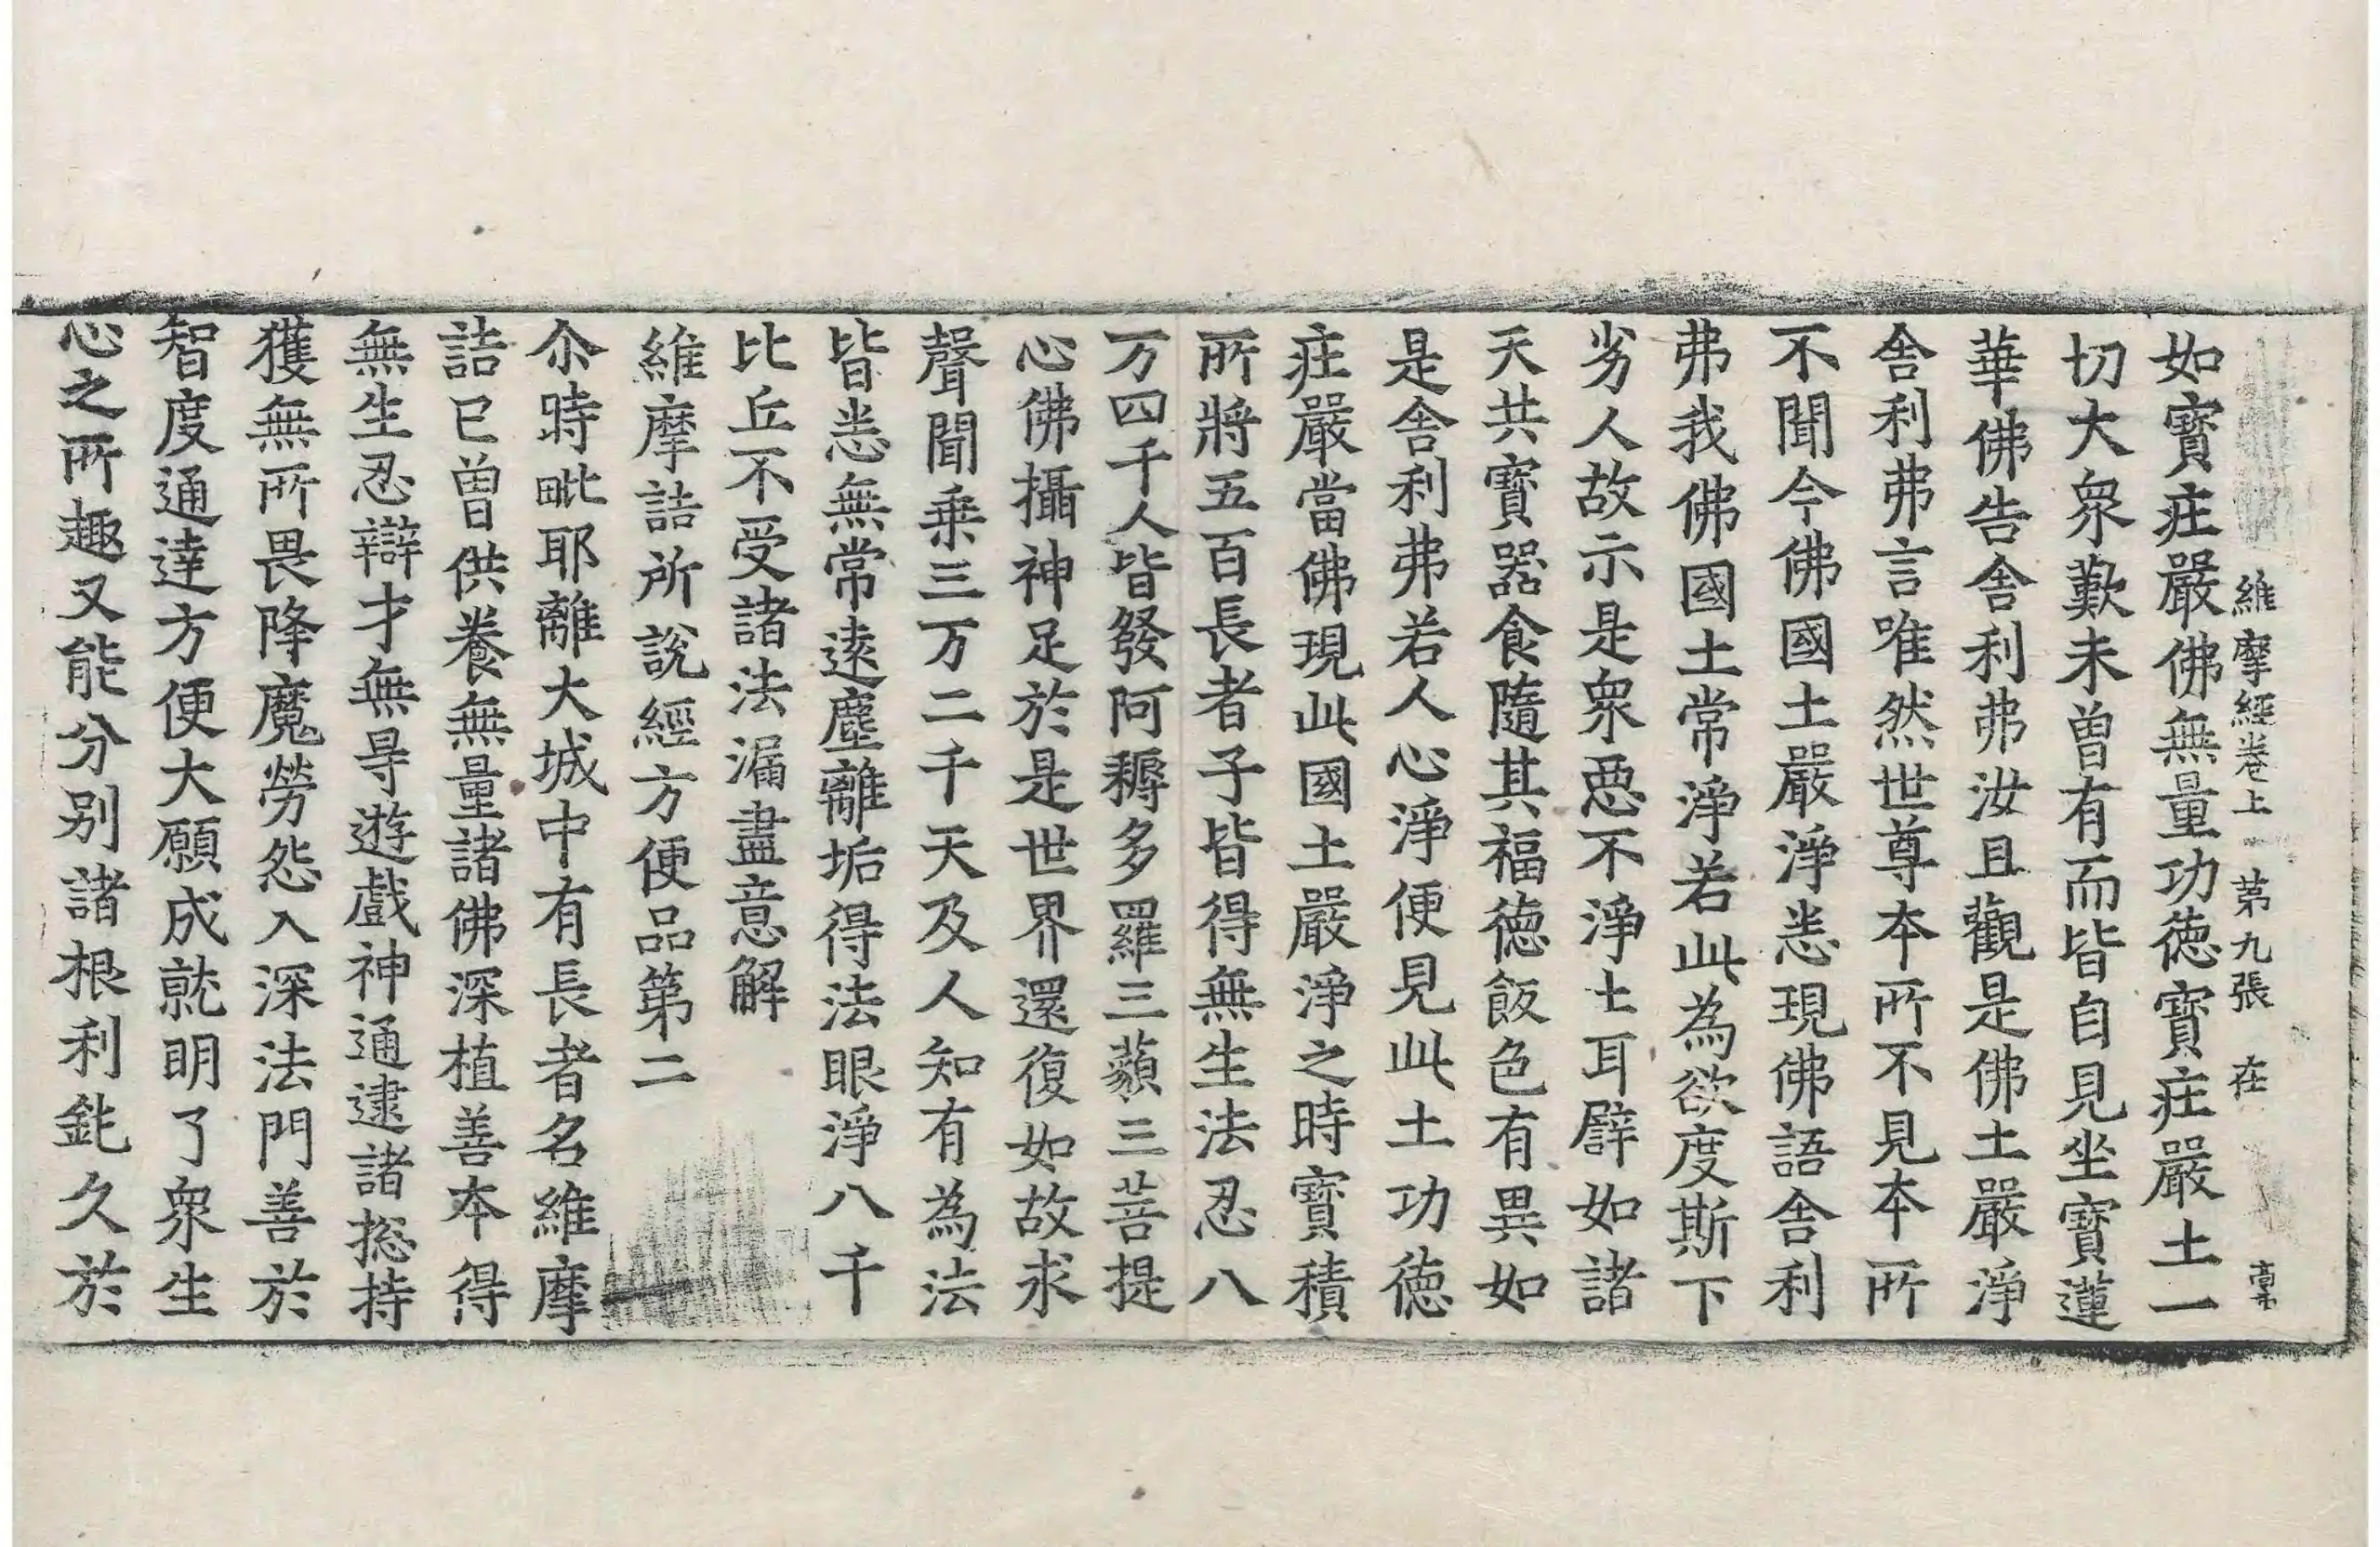 維摩經卷上 第九張 在
如寳庄嚴佛無量功徳寳庄嚴土一
切大衆歎未曽有而皆自見坐寳蓮
華佛告舍利弗汝且觀是佛土嚴淨
舍利弗言唯然世尊夲所不見夲所
不聞今佛國土嚴淨悉現佛語舍利
弗我佛國土常淨若此為欲度斯下
劣人故示是衆惡不淨土耳譬如諸
天共寳器食隨其福徳飯色有異如
是舍利弗若人心淨便見此土功徳
庄嚴當佛現此國土嚴淨之時寳積
所將五百長者子皆得無生法忍八
万四千人皆發阿耨多羅三藐三菩提
心佛攝神足於是世界還復如故求
聲聞乗三万二千天及人知有為法
皆悉無常逺塵離垢得法眼淨八千
比丘不受諸法漏盡意解
維摩詰所說經方便品第二
尒時毗耶離大城中有長者名維摩
詰已曽供養無量諸佛深植善夲得
無生忍辯才無㝵遊戲神通逮諸捴持
獲無所畏降魔勞怨入深法門善於
智度通達方便大願成就明了衆生
心之所趣又能分别諸根利鈍久於